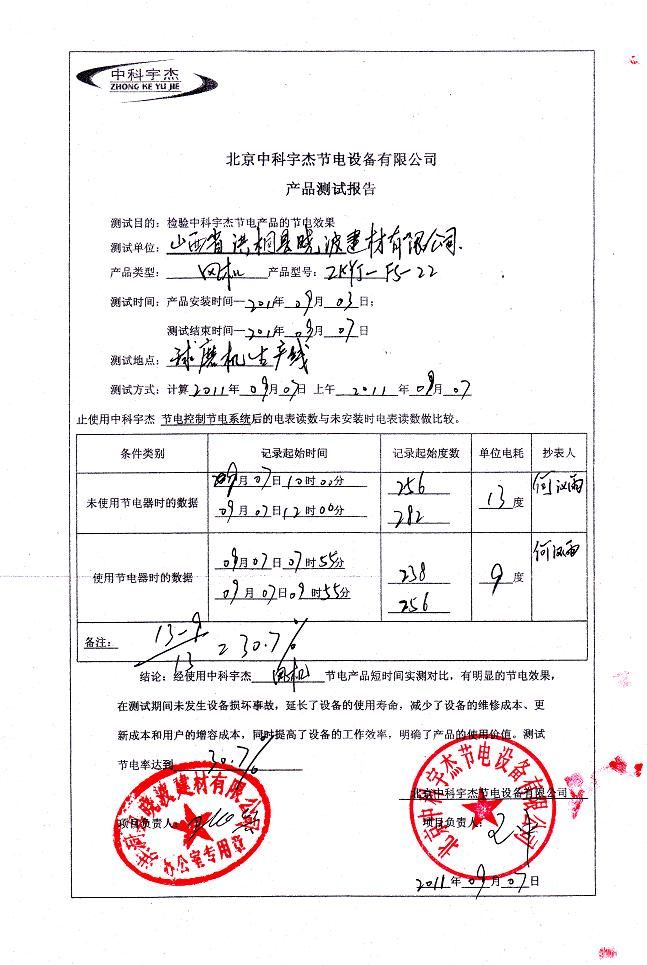 中科宇杰
ZHONG KE YU JIE
北京中科宇杰节电设备有限公司
产品测试报告
测试目的：检验中科宇杰节电产品的节电效果
测试单位：山西省洪桐县晓波建材有限公司.
产品类型：风机 产品型号：ZKYJ-FS-22
测试时间：产品安装时间—2011年09月03日；
测试结束时间—2011年09月07日
测试地点：球磨机生产线
测试方式：计算2011年09月07日 上午 2011年09月07
止使用中科宇杰 节电控制节电系统后的电表读数与未安装时电表读数做比较。
条件类别 记录起始时间 记录起始度数 单位电耗 抄表人
未使用节电器时的数据 09月07日10时00分 256 13度
09月07日12时00分 282
使用节电器时的数据 09月07日07时55分 238 9度
09月07日09时55分 256
备注： 13-9/13=30.7%
结论：经使用中科宇杰 风机 节电产品短时间实测对比，有明显的节电效果，
在测试期间未发生设备损坏事故，延长了设备的使用寿命，减少了设备的维修成本、更
新成本和用户的增容成本，同时提高了设备的工作效率，明确了产品的使用价值。测试
节电率达到 30.7%
北京中科宇杰节电设备有限公司
项目负责人： 项目负责人：
建材有限公
办公室专用章
北京中科宇杰节电设备有限公司
2011年09月07日